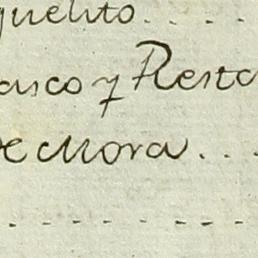 quelito....
asco y Resta
de Mora....